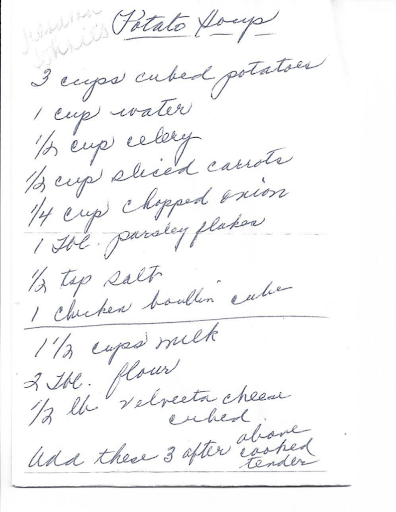 Potato Soup
3 cups cubed potatoes
1 cup water
1/2 cup celery
1/2 cup sliced carrots
1/4 cup chopped onion
1 Tbl. parsley flakes
1/2 tsp salt
1 chicken boullin cube
1 1/2 cups milk
2 Tbl. flour
1/2 lb Velveeta cheese
cubed
Add these 3 after above
cooked
tender